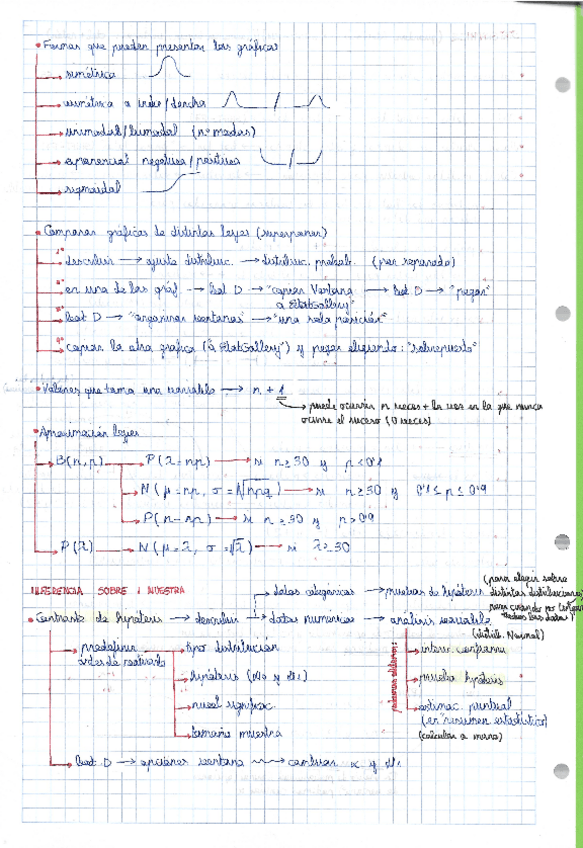 • Formas que pueden presentar las gráficas
→ simétrica
→ asimétrica a izda/dercha /
→ unimodal/bimodal (nº modas)
→ exponencial negativa/positiva /
→ sigmoidal
• Comparar gráficas de distintas leyes (superponer)
1º describir → ajuste distribuc. → distribuc. probab. (por separado)
2º en una de las gráf → bot D → "copiar Ventana → bot D → "pegar"
a StatGallery"
3º bot D → "organizar ventanas" → "una sola posición"
4º copiar la otra gráfica (a StatGallery) y pegar eligiendo: "sobrepuesto"
• Valores que toma una variable → n + 1
→ puede ocurrir n veces + la vez en la que nunca
ocurre el suceso (0 veces)
• Aproximación leyes
→ B(n,p) → P(λ=np) → si n≥30 y p<0'1
→ N(μ=np, σ=√npq) → si n≥30 y 0'1≤p≤0'9
→ P(n-np) → si n≥30 y p>0'9
→ P(λ) → N(μ=λ, σ=√λ) → si λ≥30
INFERENCIA SOBRE 1 MUESTRA
→ datos categóricos → pruebas de hipótesis (para elegir sobre
distintas distribuciones,
• Contraste de hipótesis → describir → datos numéricos → análisis variable
(distrib. Normal)
→ predefinir → tipo distribución
antes de realizarlo
→ hipótesis (H0 y H1)
→ nivel significac.
→ tamaño muestra
podemos obtener:
→ interv. confianza
→ prueba hipótesis
→ estimac. puntual
(en "resumen estadístico)
(calcular a mano)
→ bot. D → opciones ventana → cambiar α y H1